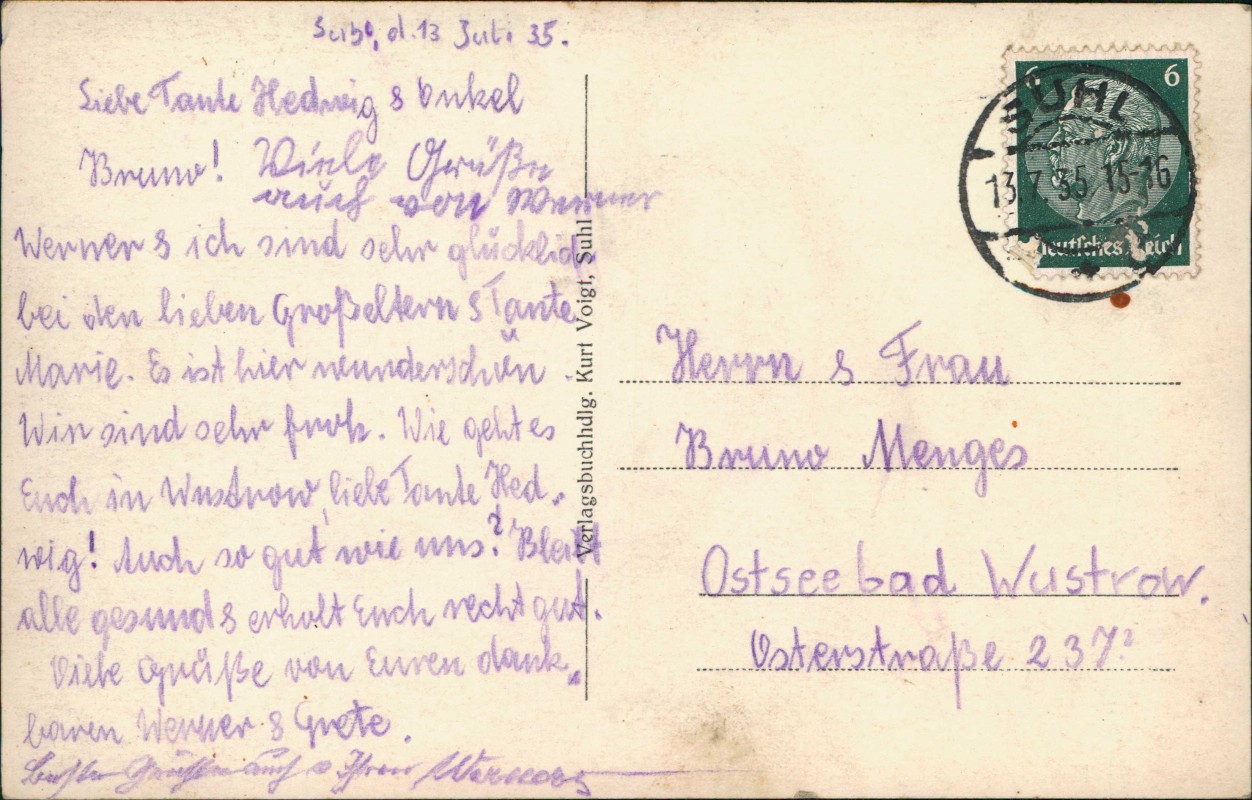 Suhl, d. 13 Juli 35.
Liebe Tante Hedwig & Onkel
Bruno! Viele Grüße
auch von Werner
Werner & ich sind sehr glücklich
bei den lieben Großeltern & Tante
Marie. Es ist hier wunderschön.
Wir sind sehr froh. Wie geht es
Euch in Wustrow, liebe Tante Hed-
wig! Auch so gut wie uns? Bleibt
alle gesund & erholt Euch recht gut.
Viele Grüße von Euren dank-
baren Werner & Grete.
Besten Grüßen auch
Verlagsbuchhdlg. Kurt Voigt, Suhl
6 6
SUHL
13.7.35 15-16
Deutsches Reich
Herrn & Frau
Bruno Menges
Ostseebad Wustrow.
Osterstraße 237?